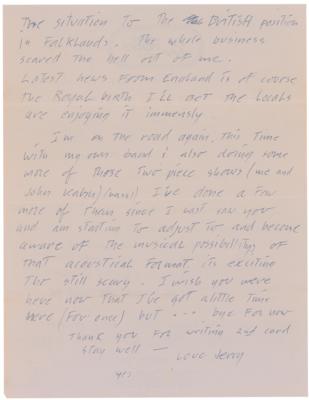 The situation to the British position
in Falklands. The whole business
scared the hell out of me.
Latest news from England is of course
the Royal birth I'll bet the locals
are enjoying it immensly
I'm on the road again, this time
with my own band & also doing some
more of those two piece shows (me and
John Kahn) (bass)). I've done a few
more of them since I last saw you
and am starting to adjust to and become
aware of the musical possibilitys of
that acoustical format, its exciting
tho still scary. I wish you were
here now that I've got a little time
here (for once) but ... bye for now
Thank you for writing and card
stay well — Love Jerry
yrs